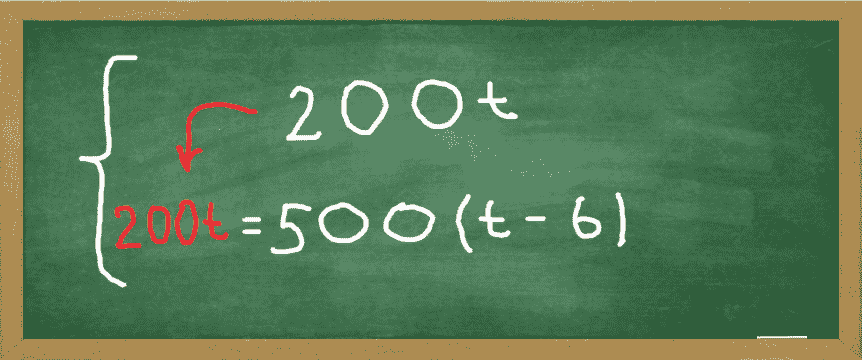 200t
200t = 500(t - 6)